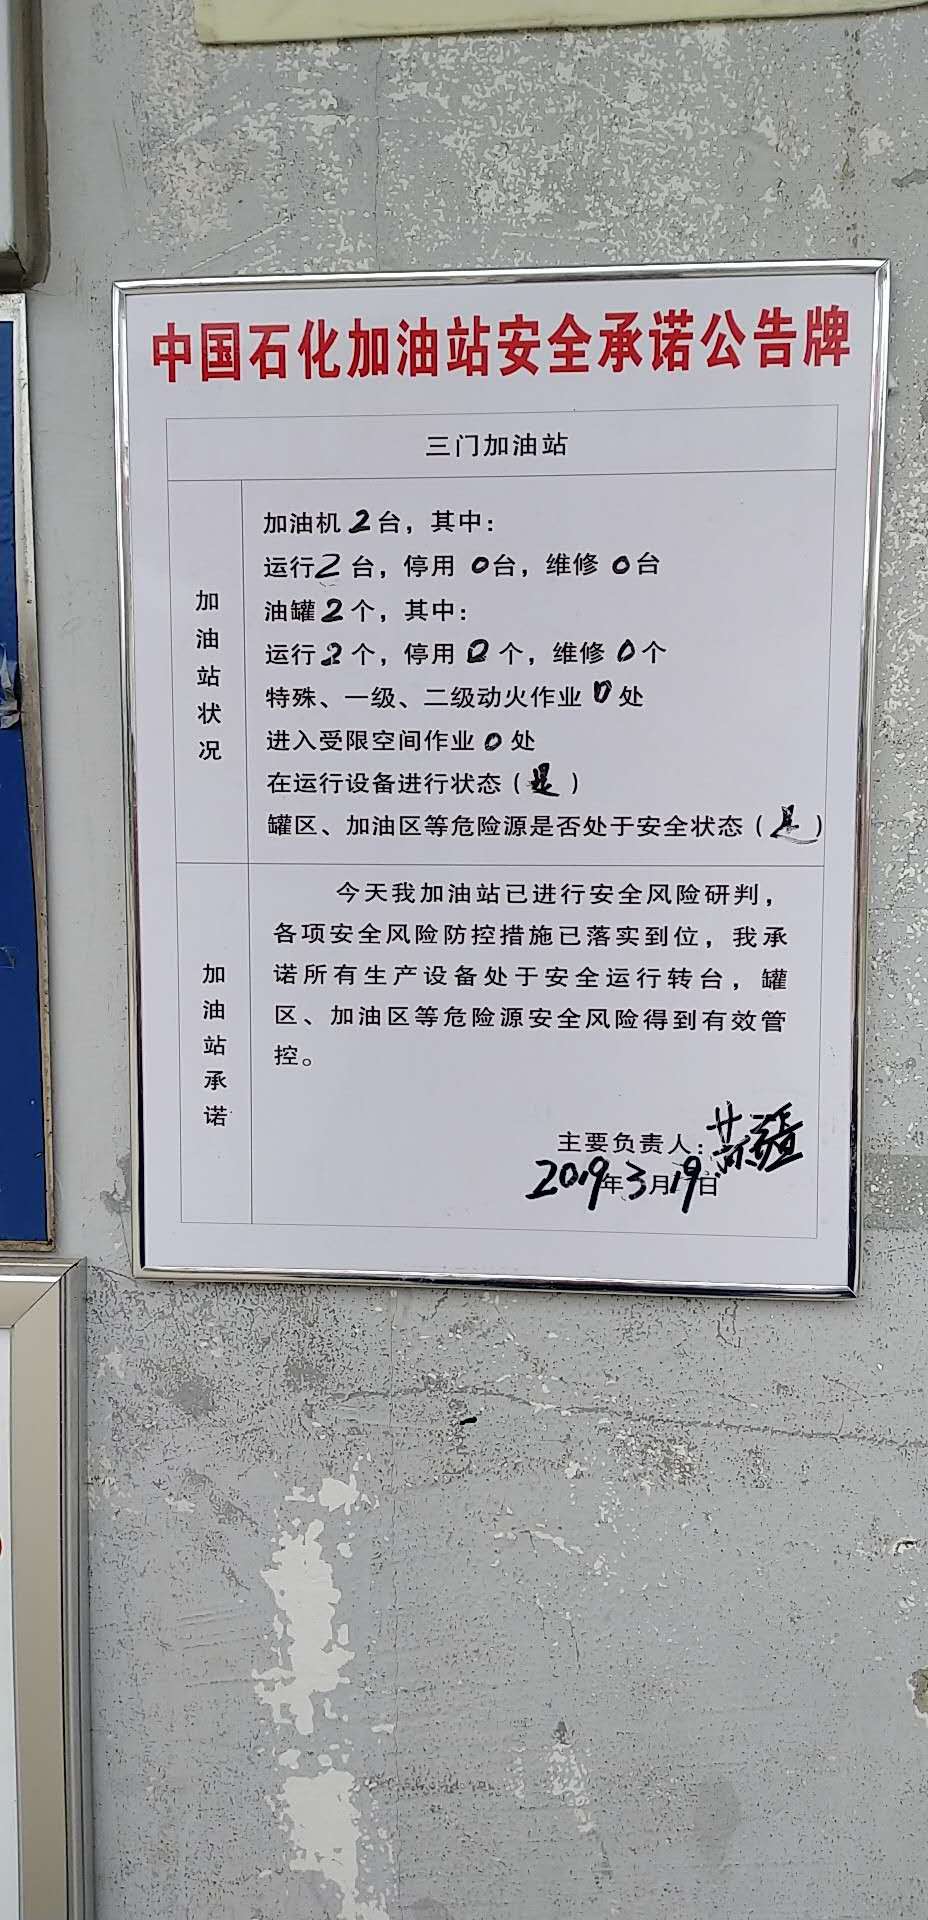 中国石化加油站安全承诺公告牌
三门加油站
加油站状况
加油机2台，其中：
运行2台，停用0台，维修0台
油罐2个，其中：
运行2个，停用0个，维修0个
特殊、一级、二级动火作业0处
进入受限空间作业0处
在运行设备进行状态（是）
罐区、加油区等危险源是否处于安全状态（是）
加油站承诺
今天我加油站已进行安全风险研判，
各项安全风险防控措施已落实到位，我承
诺所有生产设备处于安全运行转台，罐
区、加油区等危险源安全风险得到有效管
控。
主要负责人：
2019年3月19日